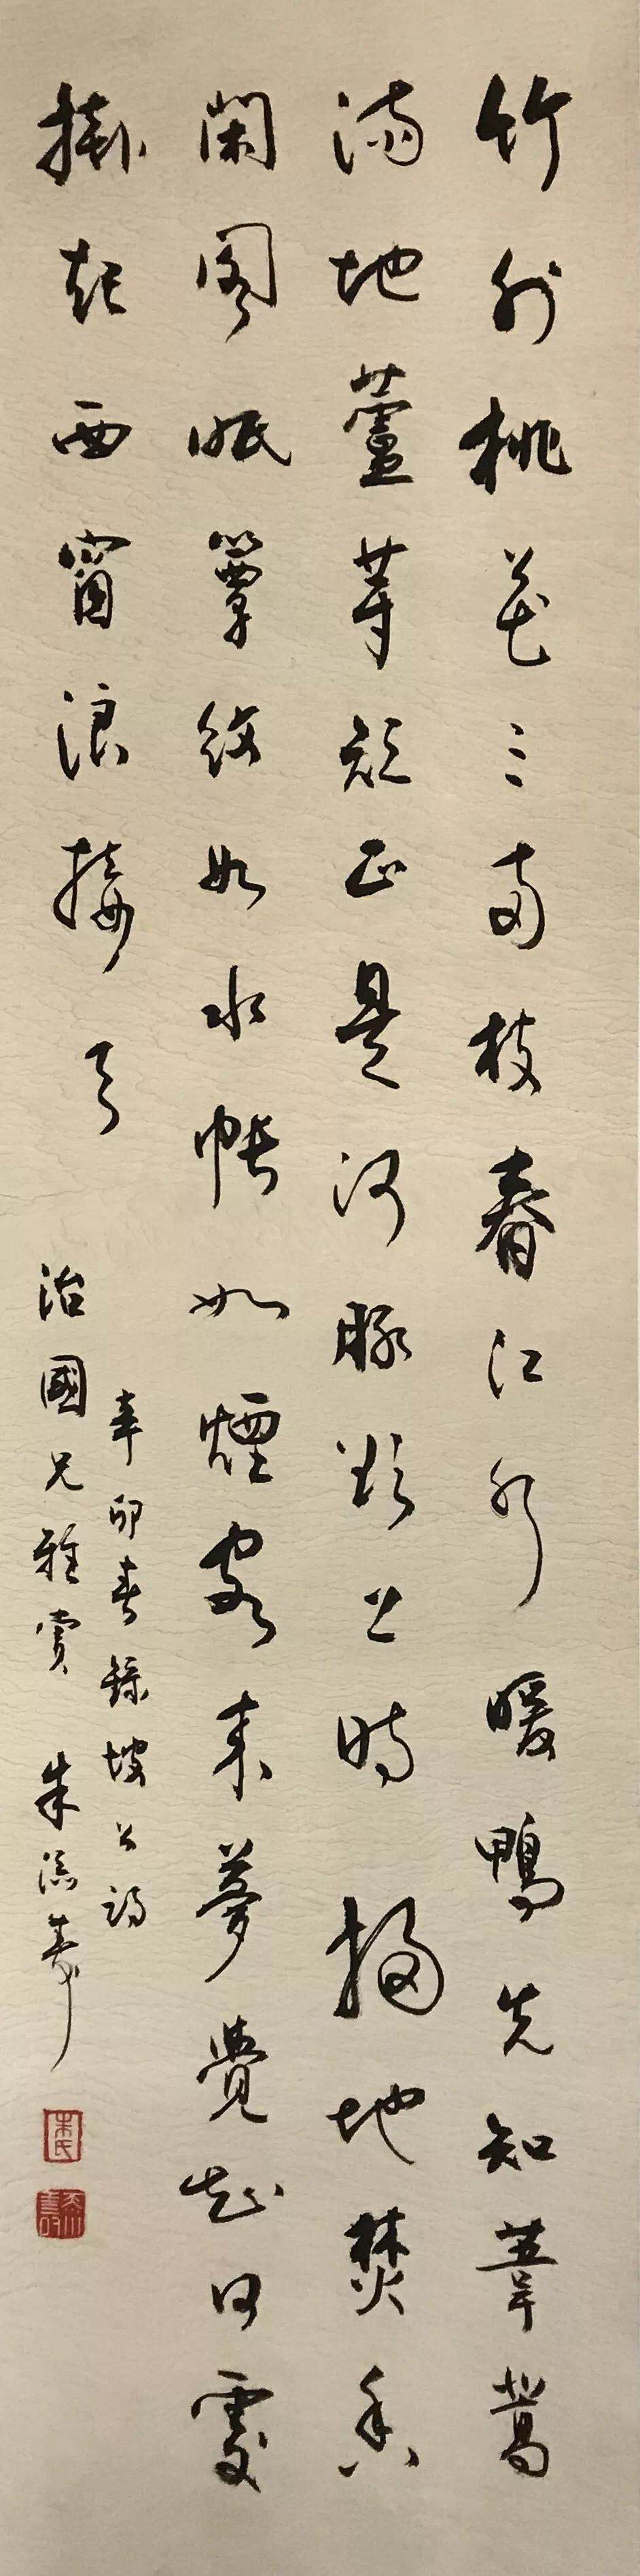 竹外桃花三兩枝春江水暖鴨先知蔞蒿
滿地蘆芽短正是河豚欲上時掃地焚香
閑閣眠簟紋如水帳如煙客來夢覺知何處
掛起西窗浪接天
辛卯春錄坡公詩
治國兄雅賞 朱添壽
朱氏
添壽